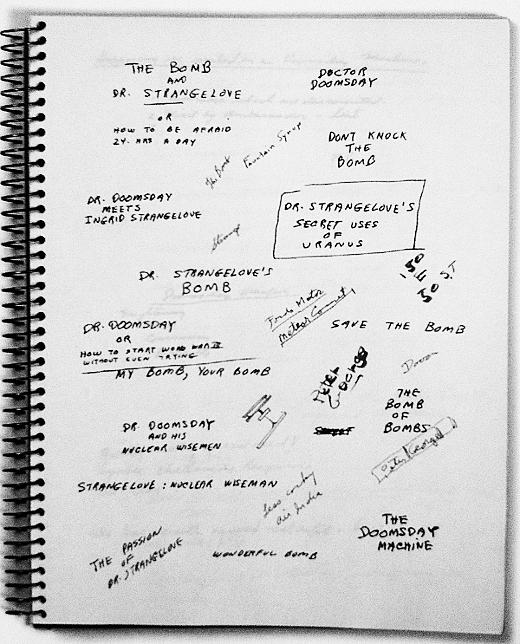 THE BOMB
AND
DR. STRANGELOVE
OR
HOW TO BE AFRAID
24 HRS A DAY
DOCTOR
DOOMSDAY
DONT KNOCK
THE
BOMB
The Bomb
Fountain Syrup
DR. DOOMSDAY
MEETS
INGRID STRANGELOVE
DR. STRANGELOVE'S
SECRET USES
OF
URANUS
Strange
DR. STRANGELOVE'S
BOMB
150
50
Meteor Comet
SAVE THE BOMB
DR. DOOMSDAY
OR
HOW TO START WORLD WAR III
WITHOUT EVEN TRYING
MY BOMB, YOUR BOMB
PETER
GEORGE
THE
BOMB
OF
BOMBS
DR. DOOMSDAY
AND HIS
NUCLEAR WISEMEN
Peter George
STRANGELOVE: NUCLEAR WISEMAN
Air India
THE PASSION
OF
DR. STRANGELOVE
WONDERFUL BOMB
THE
DOOMSDAY
MACHINE